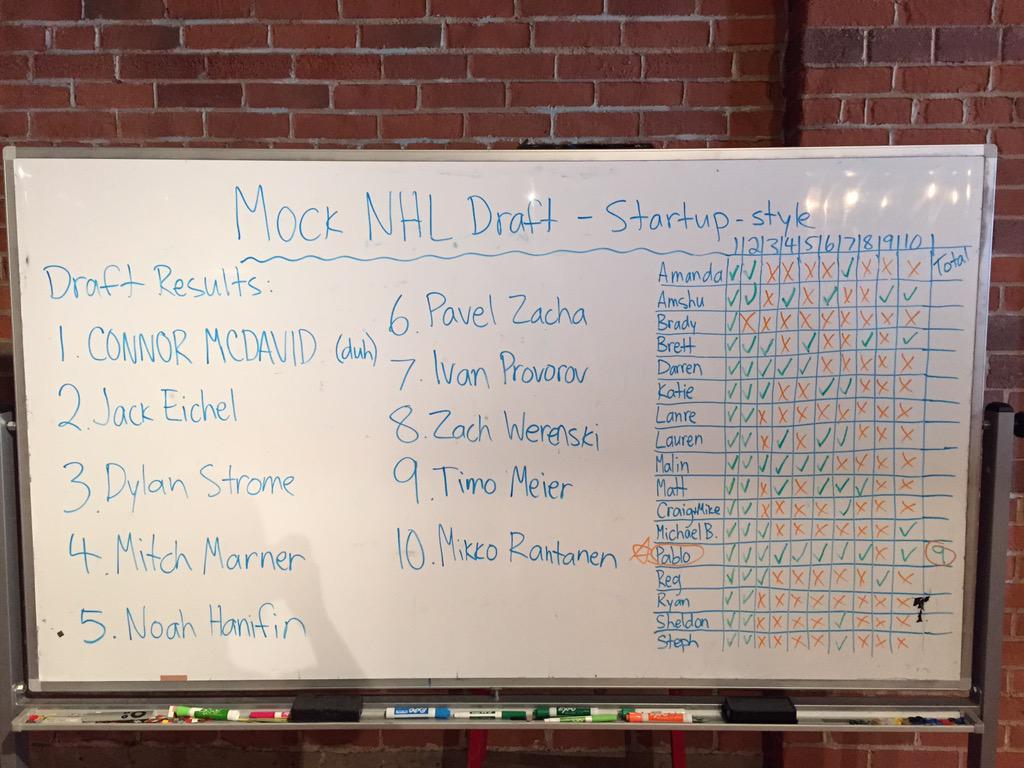 Mock NHL Draft - Startup-style
Draft Results:
1. CONNOR MCDAVID (duh)
2. Jack Eichel
3. Dylan Strome
4. Mitch Marner
5. Noah Hanifin
6. Pavel Zacha
7. Ivan Provorov
8. Zach Werenski
9. Timo Meier
10. Mikko Rantanen
1 2 3 4 5 6 7 8 9 10 Total
Amanda ✓ ✓ X X X X ✓ X X X
Amshu ✓ ✓ X ✓ X ✓ X X ✓ ✓
Brady ✓ X X X X X X X X X
Brett ✓ ✓ ✓ X ✓ X X ✓ X ✓
Darren ✓ ✓ ✓ ✓ ✓ X X X X X
Katie ✓ ✓ ✓ X X ✓ ✓ X X X
Lanre ✓ ✓ X X X X X X X X
Lauren ✓ ✓ X ✓ X ✓ ✓ X X X
Malin ✓ ✓ ✓ ✓ ✓ ✓ X X X X
Matt ✓ ✓ X ✓ X ✓ ✓ ✓ X X
Craig+Mike ✓ ✓ X X X X ✓ X X X
Michael B. ✓ ✓ ✓ X X X X X X ✓
Pablo ✓ ✓ ✓ ✓ ✓ ✓ ✓ ✓ X ✓ 9
Reg ✓ ✓ ✓ X X X X X ✓ X
Ryan ✓ ✓ X X X X X X X X
Sheldon ✓ ✓ X X X X ✓ X X X
Steph ✓ ✓ X X X X ✓ X X X
EXPO